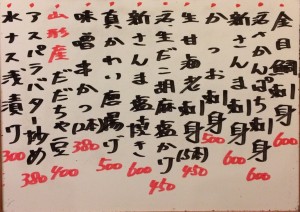 金目鯛刺身 600
活かんぱち刺身 600
かつお刺身 500
生甘海老刺身(5本) 450
活だこ胡麻塩かり 450
新さんま塩焼き 600
真かわい唐揚げ 500
味噌串かつ(2本) 380
山形産だだちゃ豆 400
アスパラバター炒め 380
水ナス浅漬け 300